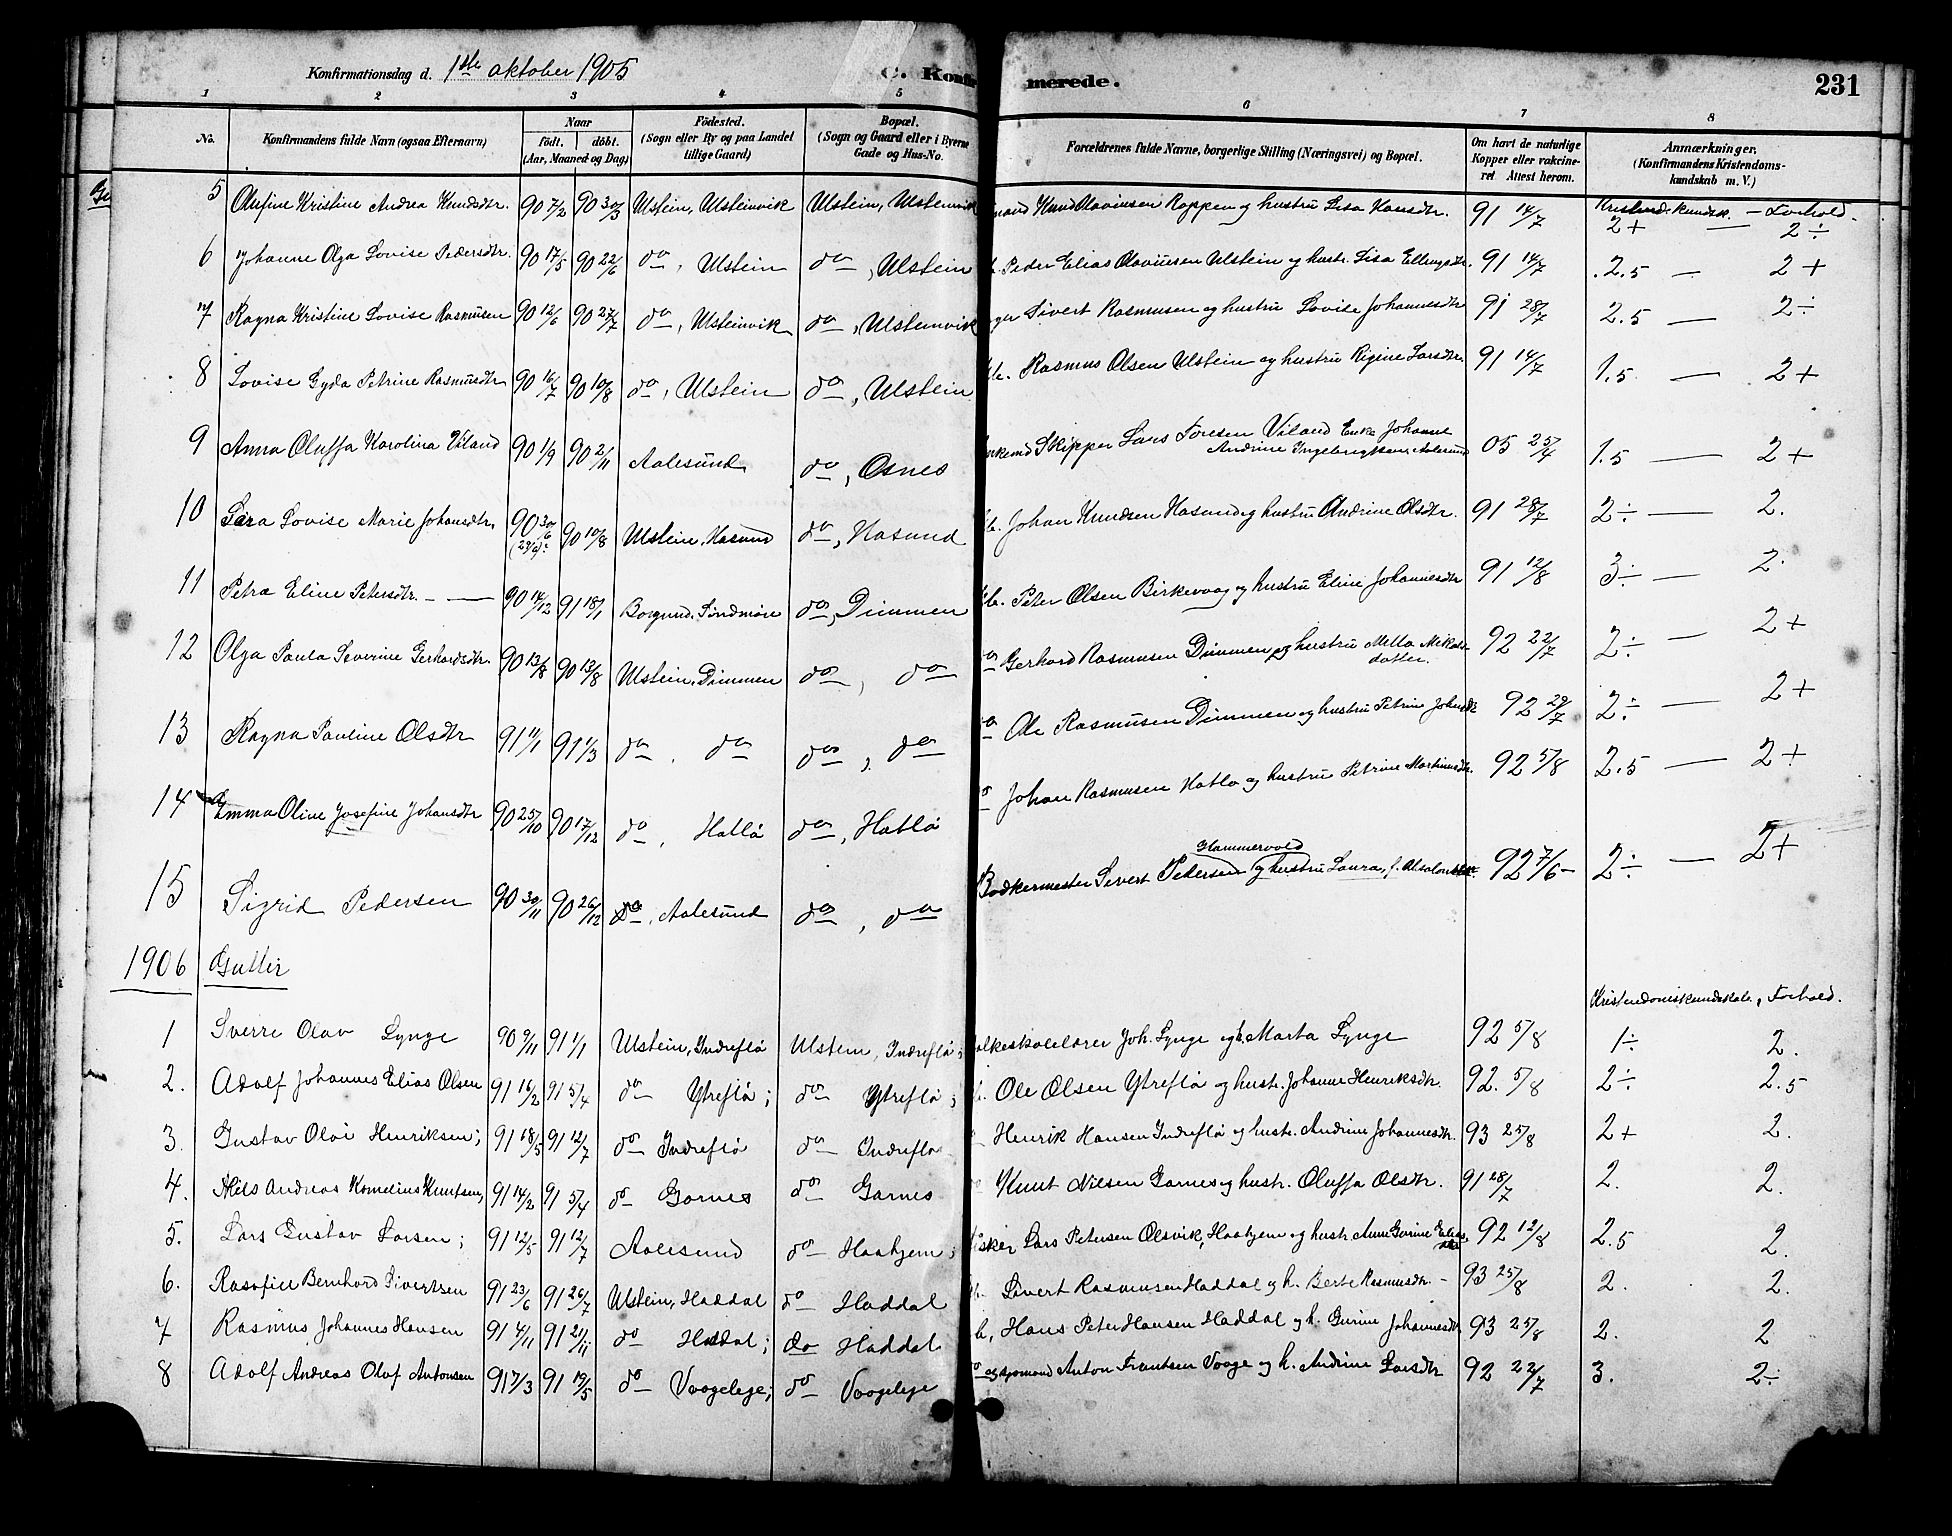 Konfirmationsdag d. 1ste oktober 1905
C. Konfirmerede.
231
1 2 3 4 5 6 7 8
No.
Konfirmandens fulde Navn (ogsaa Efternavn)
Naar
födt. döbt.
(Aar, Maaned og Dag)
Födested.
(Sogn eller By og paa Landet
tillige Gaard)
Bopæl.
(Sogn og Gaard eller i Byerne
Gade og Hus-No.
Forældrenes fulde Navne, borgerlige Stilling (Næringsvei) og Bopæl.
Om havt de naturlige
Kopper eller vakcine-
ret Attest herom.
Anmærkninger.
(Konfirmandens Kristendoms-
kundskab m. V.)
Kristend. kundsk. – Forhold.
5 Olufine Kristine Andrea Knudsdtr. 90 7/2 90 30/3 Ulstein, Ulsteinvik Ulstein, Ulsteinvik Knud Olaviusen Koppen og hustru Lisa Hansdtr. 91 14/7 2+ — 2÷
6 Johanne Olga Lovise Pedersdtr. 90 17/5 90 22/6 do, Ulstein do, Ulstein Peder Elias Olaviusen Ulstein og hustr. Lisa Ellingsdtr. 91 14/7 2.5 — 2+
7 Ragna Kristine Lovise Rasmusen 90 12/6 90 27/7 do, Ulsteinvik do, Ulsteinvik Sivert Rasmusen og hustru Lovise Johannesdtr 91 28/7 2.5 — 2÷
8 Lovise Gyda Petrine Rasmusdtr 90 16/7 90 10/8 do, Ulstein do, Ulstein Rasmus Olsen Ulstein og hustru Regine Larsdtr. 91 14/7 1.5 — 2+
9 Anna Oluffa Karolina Viland 90 1/9 90 2/11 Aalesund do, Osnes Skipper Lars Toresen Viland Enke Johanne
Andrine Ingebrigtsen, Aalesund 05 25/4 1.5 — 2+
10 Lara Lovise Marie Johansdtr. 90 30/6 (29/6): 90 10/8 Ulstein, Hasund do, Hasund Johan Knudsen Hasund og hustru Andrine Olsdtr. 91 28/7 2÷ — 2.
11 Petra Eline Petersdtr. — 90 14/12 91 18/1 Borgund, Söndmöre do, Dimmen Peter Olsen Birkevaag og hustru Eline Johannesdtr 91 12/8 3÷ — 2.
12 Olga Paula Severine Gerhardsdtr. 90 13/8 90 13/8 Ulstein, Dimmen do, do Gerhard Rasmusen Dimmen og hustru Metta Mikals
datter. 92 22/7 2÷ — 2+
13 Ragna Pauline Olsdtr 91 11/1 91 1/3 do, do do, do Ole Rasmusen Dimmen og hustru Petrine Johansdtr 92 29/7 2÷ — 2+
14 Emma Oline Josefine Johansdtr 90 25/10 90 17/12 do, Hatlö do, Hatlö Johan Rasmusen Hatlö og hustru Petrine Martinusdtr. 92 5/8 2.5 — 2+
Hammervold
15 Sigrid Pedersen 90 30/11 90 26/12 do, Aalesund do, do Bödkermester Sivert Pedersen og hustru Laura, f. Absalonsen. 92 7/6 – 2÷ — 2+
1906 Gutter
Kristendomskundskab, Forhold.
1 Sverre Olav Lynge 90 9/11 91 1/1 Ulstein, Indreflö Ulstein, Indreflö; Folkeskolelærer Joh. Lynge og h. Marta Lynge 92 5/8 1÷ 2.
2. Adolf Johannes Elias Olsen 91 16/2 91 5/4 do Ytreflö; do Ytreflö; Ole Olsen Ytreflö og hustr. Johanne Henriksdtr. 92. 5/8 2÷ 2.5
3. Gustav Olai Henriksen; 91 18/5 91 12/7 do Indreflö do Indreflö Henrik Hansen Indreflö og hustr. Andrine Johannesdtr. 93 25/8 2+ 2.
4. Nils Andreas Kornelius Knutsen, 91 14/2 91 5/4 do Garnes do Garnes Knut Nilsen Garnes og hustr. Oluffa Olsdtr. 91 28/7 2. 2.
5. Lars Gustav Larsen; 91 12/5 91 12/7 Aalesund do Haahjem; Fisker Lars Petersen Olsvik, Haahjem og hustr. Anne Gurine Elias
dtr 92 12/8 2.5 2.
6. Bernhard Sivertsen 91 23/6 91 26/7 Ulstein, Haddal do Haddal Sivert Rasmusen Haddal og h. Berte Rasmusdtr. – 93 25/8 2. 2.
7 Rasmus Johannes Hansen 91 4/11 91 21/11 do Haddal; do Haddal Hans Peter Hansen Haddal og h. Gurine Johannesdtr 93 25/8 2. 2
8 Adolf Andreas Olaf Antonsen 91 7/3 91 19/5 do Vaageleye; do Vaageleye Anton Frantsen Vaage og h. Andrine Larsdtr 92 22/7 3. 2÷